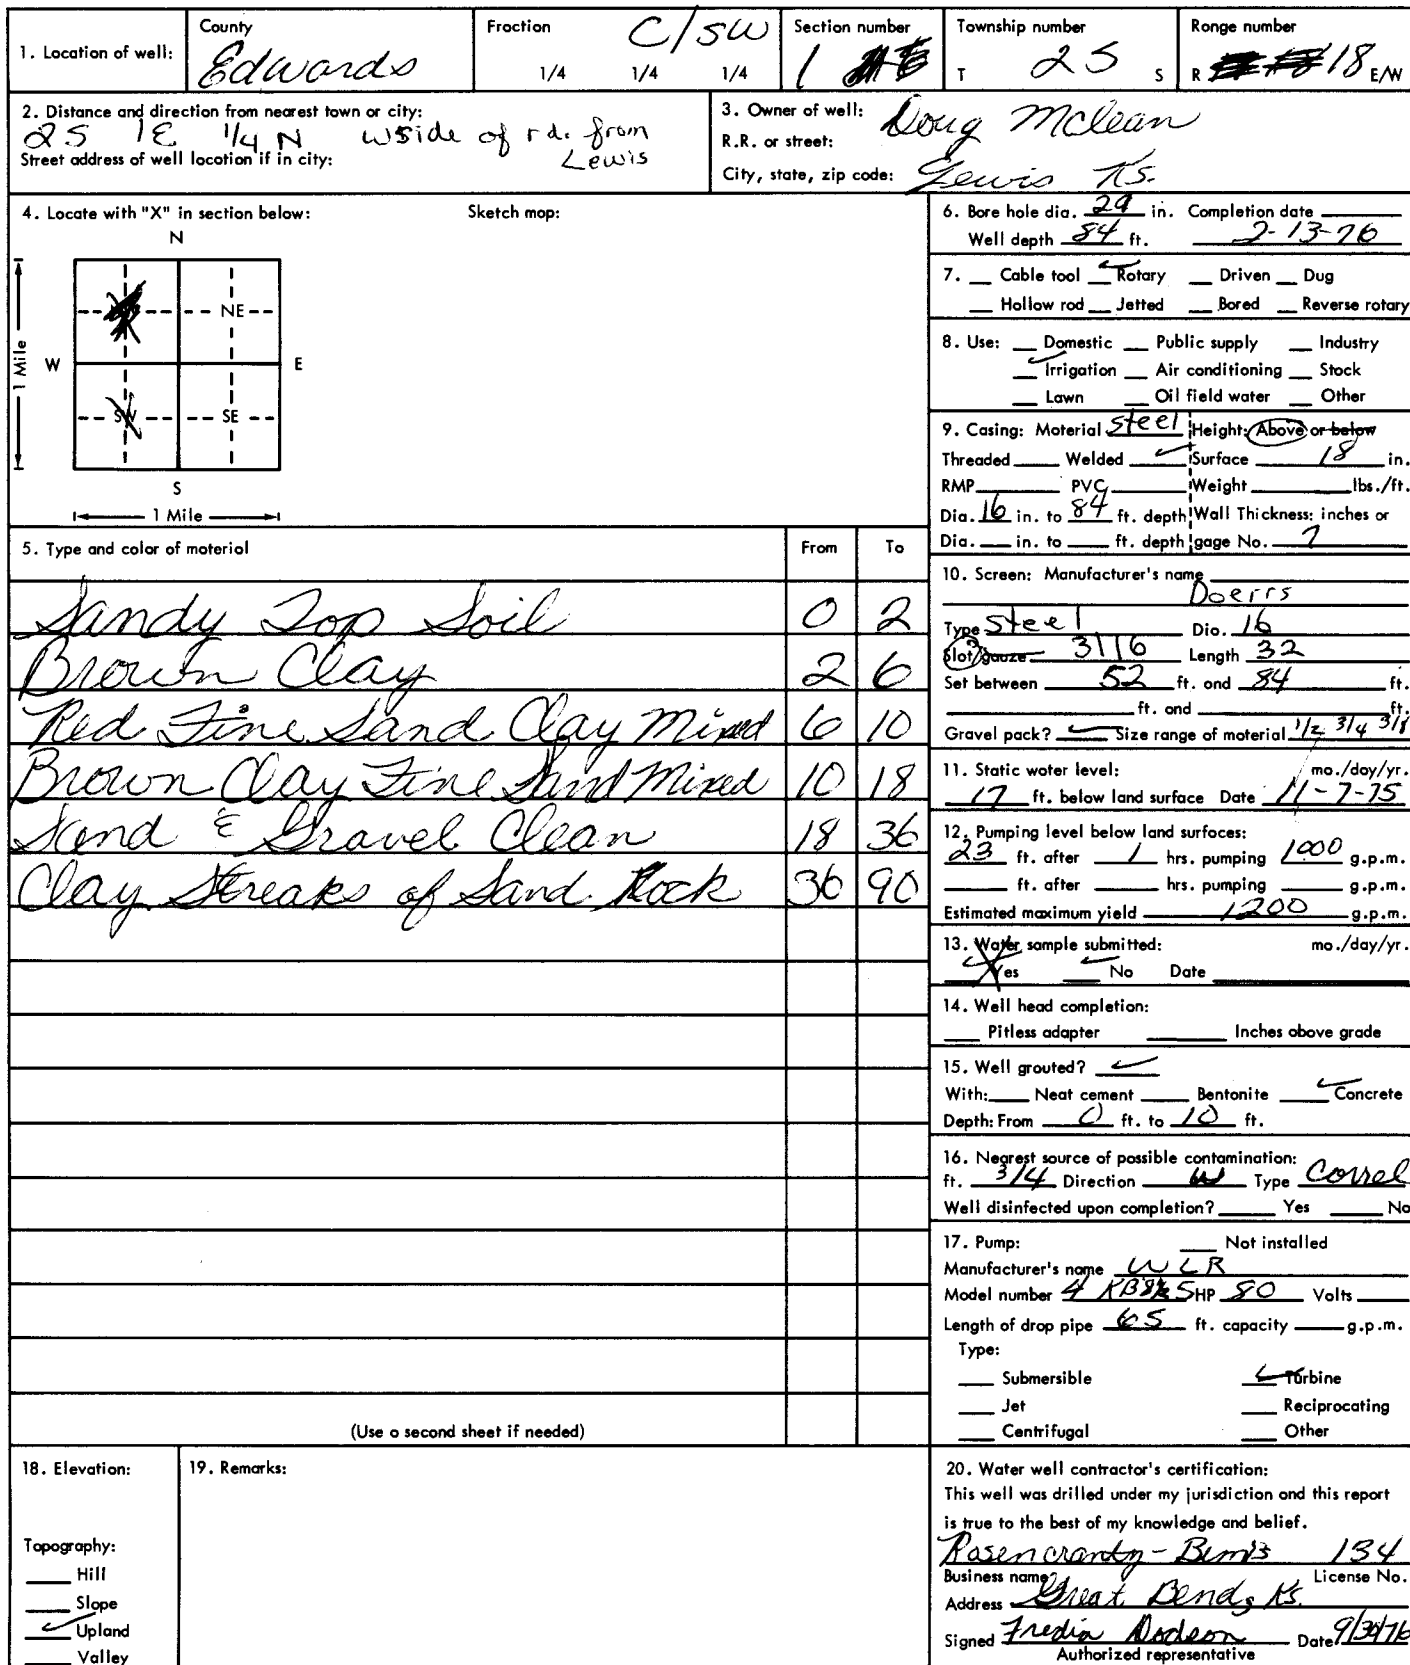 1. Location of well:
County
Edwards
Fraction C/SW
1/4 1/4 1/4
Section number
1
Township number
T 25 S
Range number
R 18 E/W
2. Distance and direction from nearest town or city:
2S 1E 1/4 N W side of rd. from Lewis
Street address of well location if in city:
3. Owner of well: Doug McLean
R.R. or street:
City, state, zip code: Lewis Ks.
4. Locate with "X" in section below: Sketch map:
N
NE
W E
1 Mile
SW SE
S
1 Mile
5. Type and color of material From To
Sandy Top Soil 0 2
Brown Clay 2 6
Red Fine Sand Clay Mixed 6 10
Brown Clay Fine Sand Mixed 10 18
Sand & Gravel Clean 18 36
Clay Streaks of Sand Rock 36 90
(Use a second sheet if needed)
6. Bore hole dia. 29 in. Completion date
Well depth 84 ft. 2-13-76
7. Cable tool ✓ Rotary Driven Dug
Hollow rod Jetted Bored Reverse rotary
8. Use: Domestic Public supply Industry
✓ Irrigation Air conditioning Stock
Lawn Oil field water Other
9. Casing: Material Steel Height: Above or below
Threaded Welded ✓ Surface 18 in.
RMP PVC Weight lbs./ft.
Dia. 16 in. to 84 ft. depth Wall Thickness: inches or
Dia. in. to ft. depth gage No. 7
10. Screen: Manufacturer's name
Doerrs
Type Steel Dia. 16
Slot/gauze 3116 Length 32
Set between 52 ft. and 84 ft.
ft. and ft.
Gravel pack? ✓ Size range of material 1/2 3/4 3/8
11. Static water level: mo./day/yr.
17 ft. below land surface Date 11-7-75
12. Pumping level below land surfaces:
23 ft. after 1 hrs. pumping 1000 g.p.m.
ft. after hrs. pumping g.p.m.
Estimated maximum yield 1200 g.p.m.
13. Water sample submitted: mo./day/yr.
Yes ✓ No Date
14. Well head completion:
Pitless adapter Inches above grade
15. Well grouted? ✓
With: Neat cement Bentonite ✓ Concrete
Depth: From 0 ft. to 10 ft.
16. Nearest source of possible contamination:
ft. 3/4 Direction W Type Correl
Well disinfected upon completion? Yes No
17. Pump: Not installed
Manufacturer's name WLR
Model number HP 80 Volts
Length of drop pipe 65 ft. capacity g.p.m.
Type:
Submersible ✓ Turbine
Jet Reciprocating
Centrifugal Other
18. Elevation:
Topography:
Hill
Slope
✓ Upland
Valley
19. Remarks:
20. Water well contractor's certification:
This well was drilled under my jurisdiction and this report
is true to the best of my knowledge and belief.
Rosencrantz-Bemis 134
Business name License No.
Address Great Bend, Ks.
Signed Fredia Dodson Date 9/30/76
Authorized representative